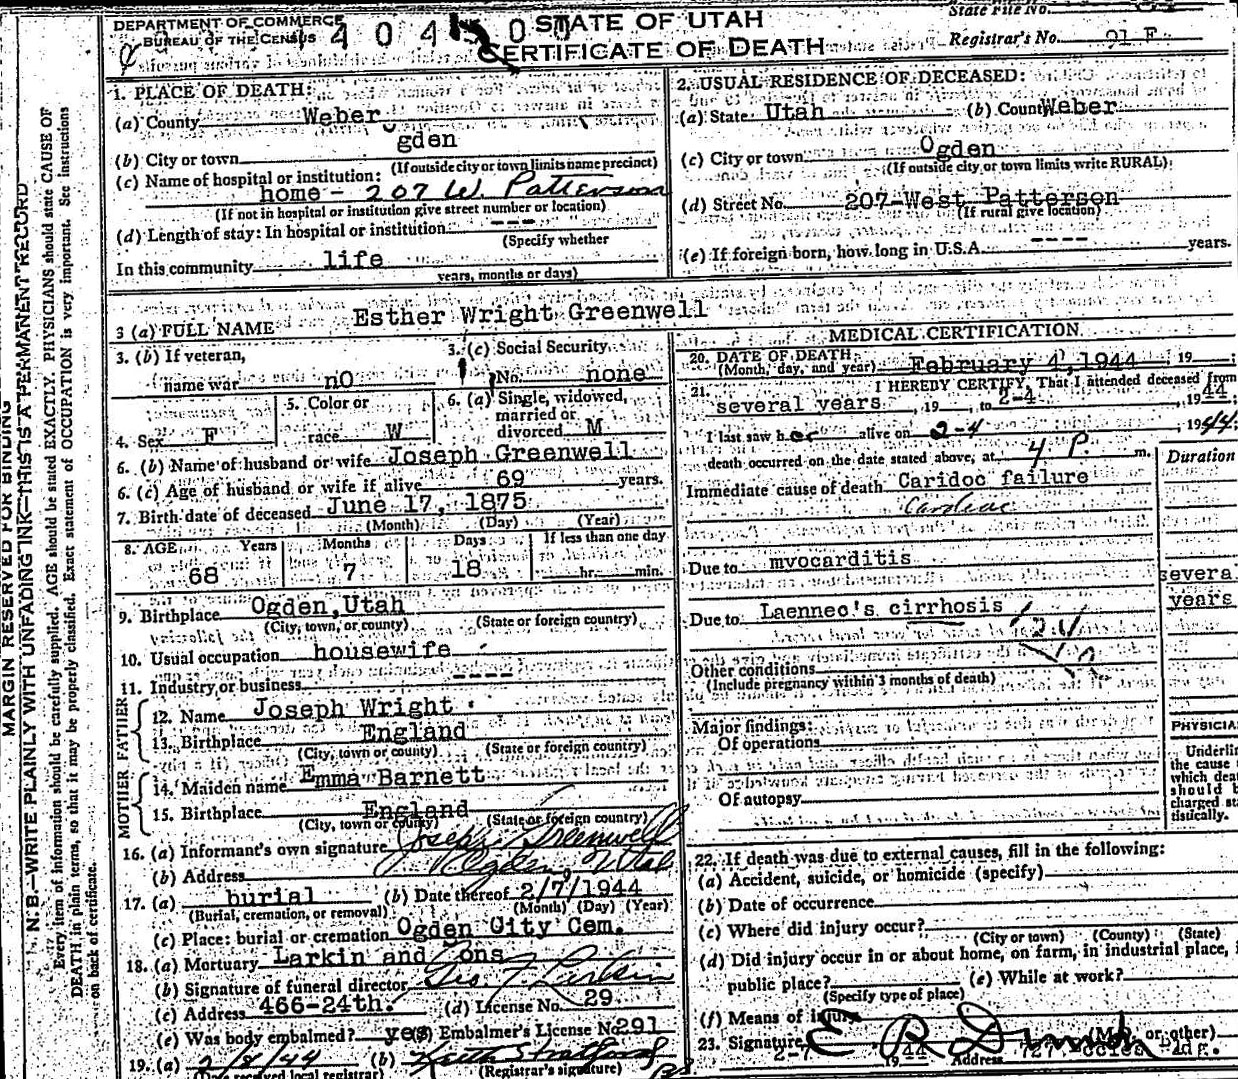 DEPARTMENT OF COMMERCE
BUREAU OF THE CENSUS
STATE OF UTAH
CERTIFICATE OF DEATH
State File No.
Registrar's No. 91 F
MARGIN RESERVED FOR BINDING
N. B.—WRITE PLAINLY WITH UNFADING INK—THIS IS A PERMANENT RECORD
Every item of information should be carefully supplied. AGE should be stated EXACTLY. PHYSICIANS should state CAUSE OF
DEATH in plain terms, so that it may be properly classified. Exact statement of OCCUPATION is very important. See instructions
on back of certificate.
1. PLACE OF DEATH:
(a) County Weber
gden
(b) City or town
(If outside city or town limits name precinct)
(c) Name of hospital or institution:
home - 207 W. Patterson
(If not in hospital or institution give street number or location)
(d) Length of stay: In hospital or institution ---
(Specify whether
In this community life
years, months or days)
2. USUAL RESIDENCE OF DECEASED:
(a) State Utah (b) County Weber
(c) City or town Ogden
(If outside city or town limits write RURAL)
(d) Street No. 207 West Patterson
(If rural give location)
(e) If foreign born, how long in U.S.A. ---- years.
3 (a) FULL NAME Esther Wright Greenwell
3. (b) If veteran,
name war nO
3. (c) Social Security
No. none
4. Sex F
5. Color or
race W
6. (a) Single, widowed,
married or
divorced M
6. (b) Name of husband or wife Joseph Greenwell
6. (c) Age of husband or wife if alive 69 years.
7. Birth date of deceased June 17, 1875
(Month) (Day) (Year)
8. AGE Years Months Days If less than one day
68 7 18 hr. min.
9. Birthplace Ogden, Utah
(City, town, or county) (State or foreign country)
10. Usual occupation housewife
11. Industry or business ----
FATHER
12. Name Joseph Wright
13. Birthplace England
(City, town or county) (State or foreign country)
MOTHER
14. Maiden name Emma Barnett
15. Birthplace England
(City, town or county) (State or foreign country)
16. (a) Informant's own signature Joseph Greenwell
(b) Address Ogden, Utah
17. (a) burial (b) Date thereof 2/7/1944
(Burial, cremation, or removal) (Month) (Day) (Year)
(c) Place: burial or cremation Ogden City Cem.
18. (a) Mortuary Larkin and Sons
(b) Signature of funeral director Geo. T. Larkin
(c) Address 466-24th. (d) License No. 29
(e) Was body embalmed? yes (f) Embalmer's License No. 291
19. (a) 2/8/44 (b)
(Date received local registrar) (Registrar's signature)
MEDICAL CERTIFICATION
20. DATE OF DEATH:
(Month, day, and year) February 4, 1944 19 ;
21. I HEREBY CERTIFY, That I attended deceased from
several years, 19 , to 2-4, 1944;
I last saw her alive on 2-4, 1944;
death occurred on the date stated above, at 4 P. m.
Duration
Immediate cause of death Caridoc failure
Cardiac
Due to myocarditis
severa
years
Due to Laennec's cirrhosis
Other conditions
(Include pregnancy within 3 months of death)
Major findings:
Of operations
Of autopsy
PHYSICIA
Underlin
the cause
which dea
should b
charged sta
tistically.
22. If death was due to external causes, fill in the following:
(a) Accident, suicide, or homicide (specify)
(b) Date of occurrence
(c) Where did injury occur?
(City or town) (County) (State)
(d) Did injury occur in or about home, on farm, in industrial place, i
public place? (e) While at work?
(Specify type of place)
(f) Means of injury
23. Signature E R (M.D. or other)
44 Address